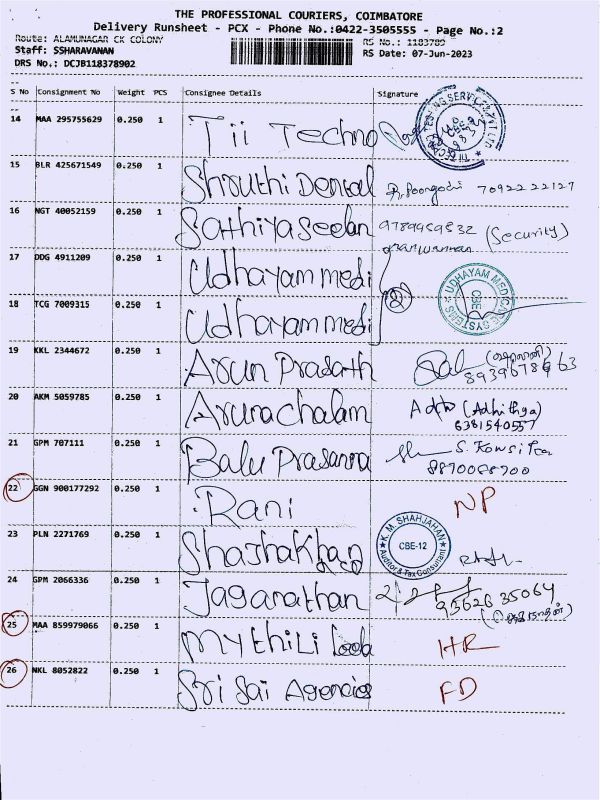 THE PROFESSIONAL COURIERS, COIMBATORE
Delivery Runsheet - PCX - Phone No.:0422-3505555 - Page No.:2
Route: ALAMUNAGAR CK COLONY RS No.: 1183789
Staff: SSHARAVANAN RS Date: 07-Jun-2023
DRS No.: DCJB118378902
S No Consignment No Weight PCS Consignee Details Signature
14 MAA 295755629 0.250 1 Tii Techno
15 BLR 425671549 0.250 1 Shruthi Dental R. Poongodi 70922 22127
16 NGT 40052159 0.250 1 Sathiyaseelan 9789959832 (Security)
17 DDG 4911209 0.250 1 Udhayam medi
UDHAYAM MEDICARE SYSTEMS CBE
18 TCG 7009315 0.250 1 Udhayam medi
19 KKL 2344672 0.250 1 Arun Prasath
8939678963
20 AKM 5059785 0.250 1 Arunachalam (Adhithya)
6381540557
21 GPM 707111 0.250 1 Balu Prasanna
8870088700
22 GGN 900177292 0.250 1 Rani NP
23 PLN 2271769 0.250 1 Shajhakhan
K. M. SHAHJAHAN CBE-12 Auditor & Tax Consultant
24 GPM 2066336 1 Jaganathan
95626 35064
25 MAA 859979066 0.250 1 mythili HR
26 NKL 8052822 0.250 1 Sri Sai Agencies FD